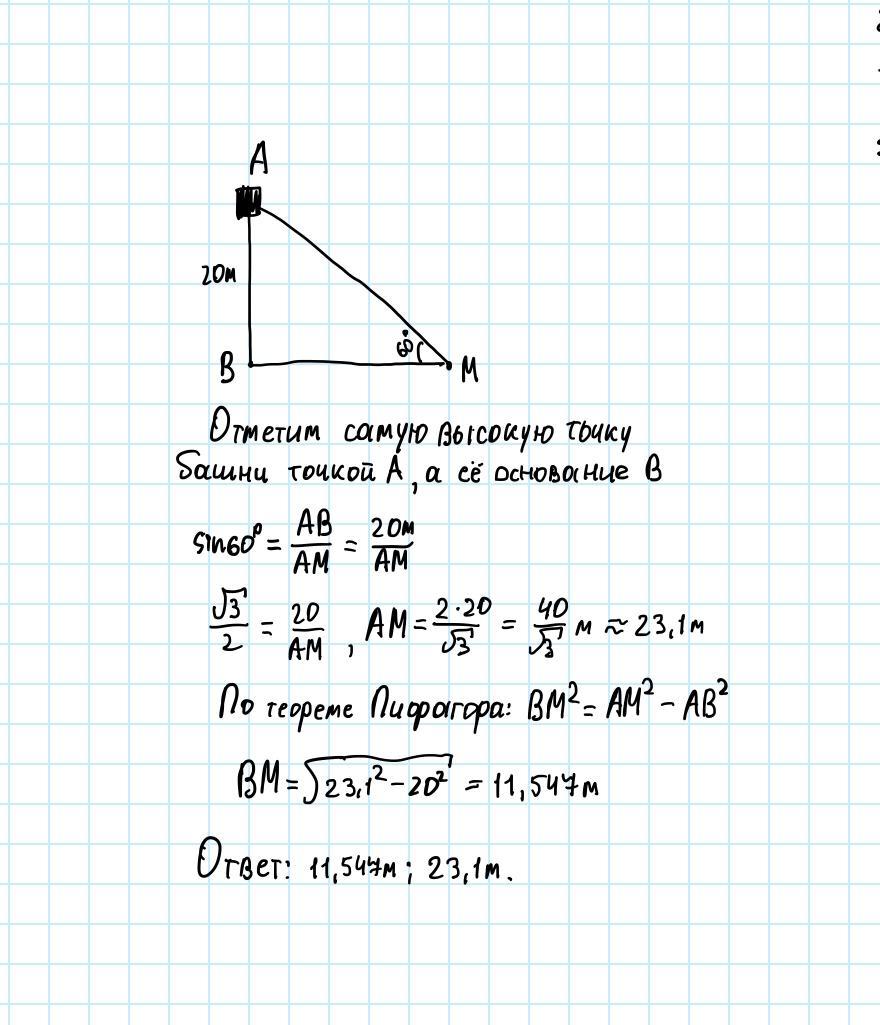 A
20м
60°
B
M
Отметим самую высокую точку
башни точкой A, а её основание B
sin60° = AB/AM = 20м/AM
√3/2 = 20/AM , AM = 2·20/√3 = 40/√3 м ≈ 23,1м
По теореме Пифрагора: BM² = AM² − AB²
BM = √(23,1² − 20²) = 11,547м
Ответ: 11,547м ; 23,1м.